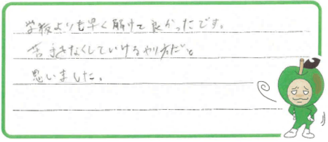 学校よりも早く解けて良かったです。
苦手なくしていけるやり方だと
思いました。